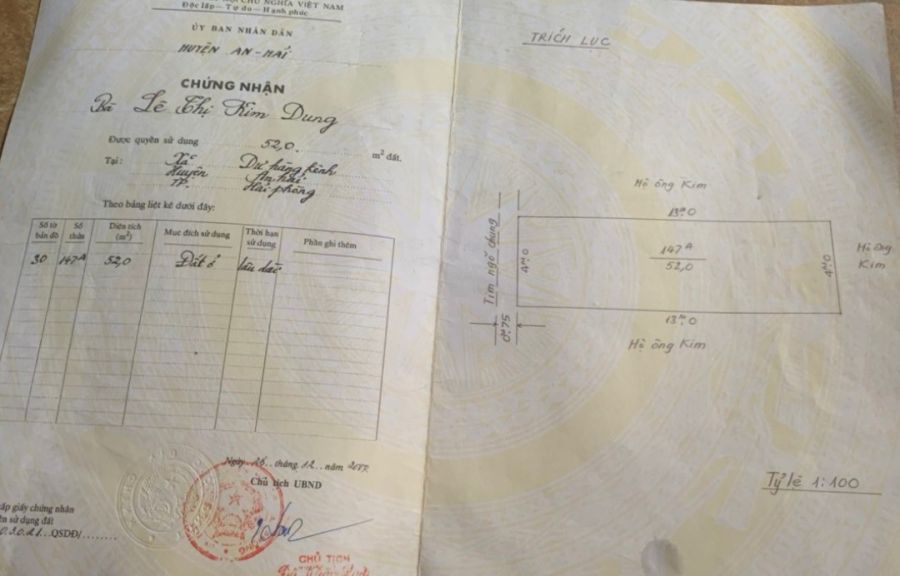 HỘI CHỦ NGHĨA VIỆT NAM
Độc lập - Tự do - Hạnh phúc
ỦY BAN NHÂN DÂN
HUYỆN AN-HẢI
CHỨNG NHẬN
Bà Lê Thị Kim Dung
Được quyền sử dụng 52,0. m² đất.
Tại: Xã Dư hàng kênh
Huyện An hải
TP. Hải phòng
Theo bảng liệt kê dưới đây:
Số tờ bản đồ Số thửa Diện tích (m²) Mục đích sử dụng Thời hạn sử dụng Phần ghi thêm
30 147A 52,0 Đất ở lâu dài
Ngày 26 tháng 12 năm
Chủ tịch UBND
cấp giấy chứng nhận
sử dụng đất
QSDĐ/
CHỦ TỊCH
TRÍCH LỤC
Hộ ông Kim
13m0
Tim ngõ chung
4m0
147A
52,0
4m0
Hộ ông
Kim
0m75
13m0
Hộ ông Kim
Tỷ lệ 1:100